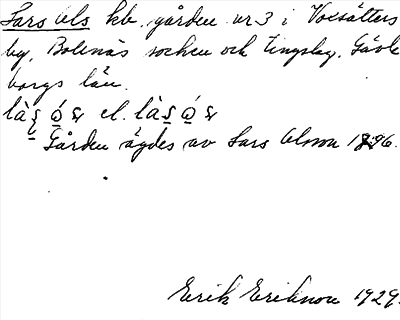 Lars ols kb. gården nr 3 i Voxsätters
by, Bollnäs socken och tingslag, Gävle
borgs län.
Gården ägdes av Lars Olsson 1896.
Erik Eriksson 1929.